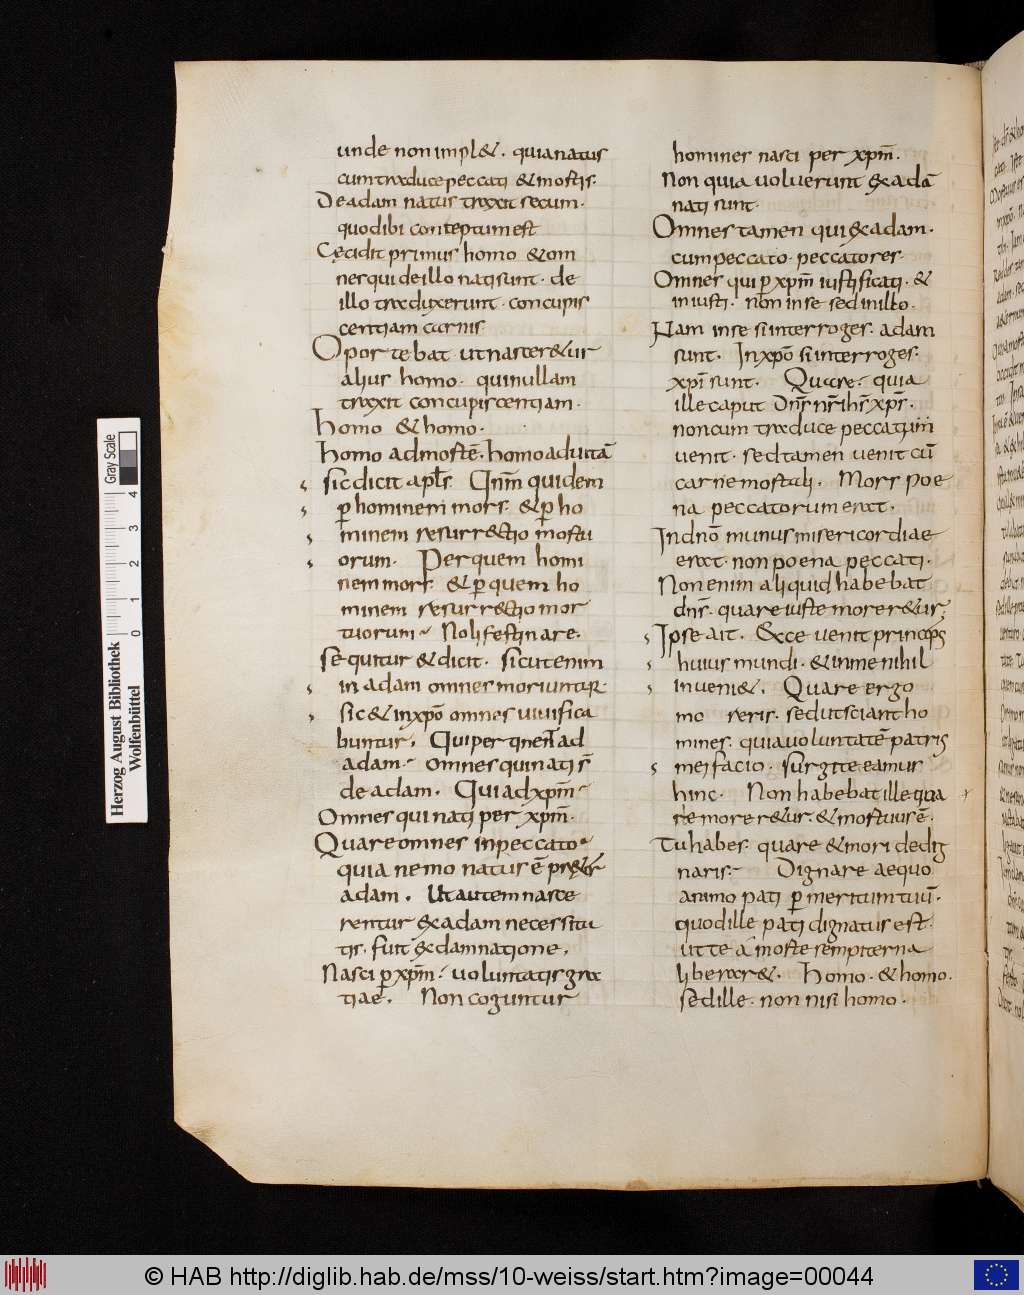 unde non impl&. quia natus
cum traduce peccati & mortis.
De adam natus traxit secum.
quod ibi conceptum est
Cecidit primus homo & om
nes qui de illo nati sunt. de
illo traduxerunt. concupis
centiam carnis.
Oportebat ut nascer&ur
alius homo. qui nullam
traxit concupiscentiam.
homo & homo.
homo ad mortē. homo ad uitā
sic dicit apłs. Qnm̄ quidem
ꝑ hominem mors. & ꝑ ho
minem resurr&tio mortu
orum. Per quem homi
nem mors. & ꝑ quem ho
minem resurr&tio mor
tuorum. Noli festinare.
sequitur & dicit. sicut enim
in adam omnes moriuntur
sic & in xp̄o omnes uiuifica
buntur. Qui per ad
adam. omnes qui nati s̄
de adam. Qui ad xp̄m.
Omnes qui nati per xp̄m.
Quare omnes in peccato.
quia nemo natus ē pr&er
adam. Ut autem nasce
rentur &x adam necessita
tis. fuit &x damnatione.
Nasci ꝑ xp̄m. uoluntatis gra
tiae. Non coguntur
homines nasci per xp̄m.
Non quia uoluerunt &x adā
nati sunt.
Omnes tamen qui &x adam.
cum peccato peccatores.
Omnes qui ꝑ xp̄m iustificati. &
iniusti. non in se sed in illo.
Nam in se si interroges. adam
sunt. In xp̄o si interroges.
xp̄i sunt. Quare. quia
ille caput dn̄s nr̄ ih̄s xp̄s.
non cum traduce peccatum
uenit. sed tamen uenit cū
carne mortali. Mors poe
na peccatorum erat.
In dn̄o munus misericordiae
erat. non poena peccati.
Non enim aliquid habebat
dn̄s. quare iuste morer&ur.
Ipse ait. Ecce uenit princeps
huius mundi. & in me nihil
inueni&. Quare ergo
mo reris. sed ut sciant ho
mines. quia uoluntatē patris
mei facio. surgite eamus
hinc. Non habebat ille qua
re morer&ur. & mortuus ē.
Tu habes. quare & mori dedig
naris. Dignare aequo
animo pati ꝑ meritum tuū.
quod ille pati dignatus est.
ut te a morte sempiterna
liberar&. Homo. & homo.
sed ille. non nisi homo.
Herzog August Bibliothek
Wolfenbüttel
0 1 2 3 4
Gray Scale
© HAB http://diglib.hab.de/mss/10-weiss/start.htm?image=00044